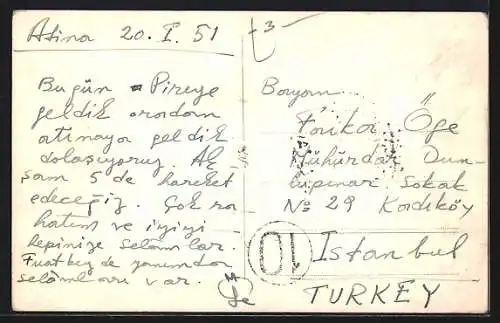 Atina 20. I. 51
Bugün Pireye
geldik oradan
atinaya geldik
dolaşıyoruz. Ak
şam 5 de hareket
edeceğiz. Çok ra
hatım ve iyiyi
hepinize selâmlar.
Fuat bey de yanımda
selâmları var.
Bayan
Faika Öge
Mühürdar Dum
lupınar Sokak
No 29 Kadıköy
Istanbul
TURKEY
10